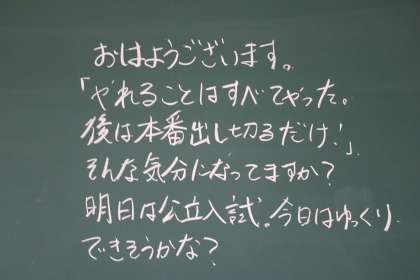 おはようございます。
「やれることはすべてやった。
後は本番出し切るだけ!」
そんな気分になってますか?
明日は公立入試。今日はゆっくり
できそうかな?